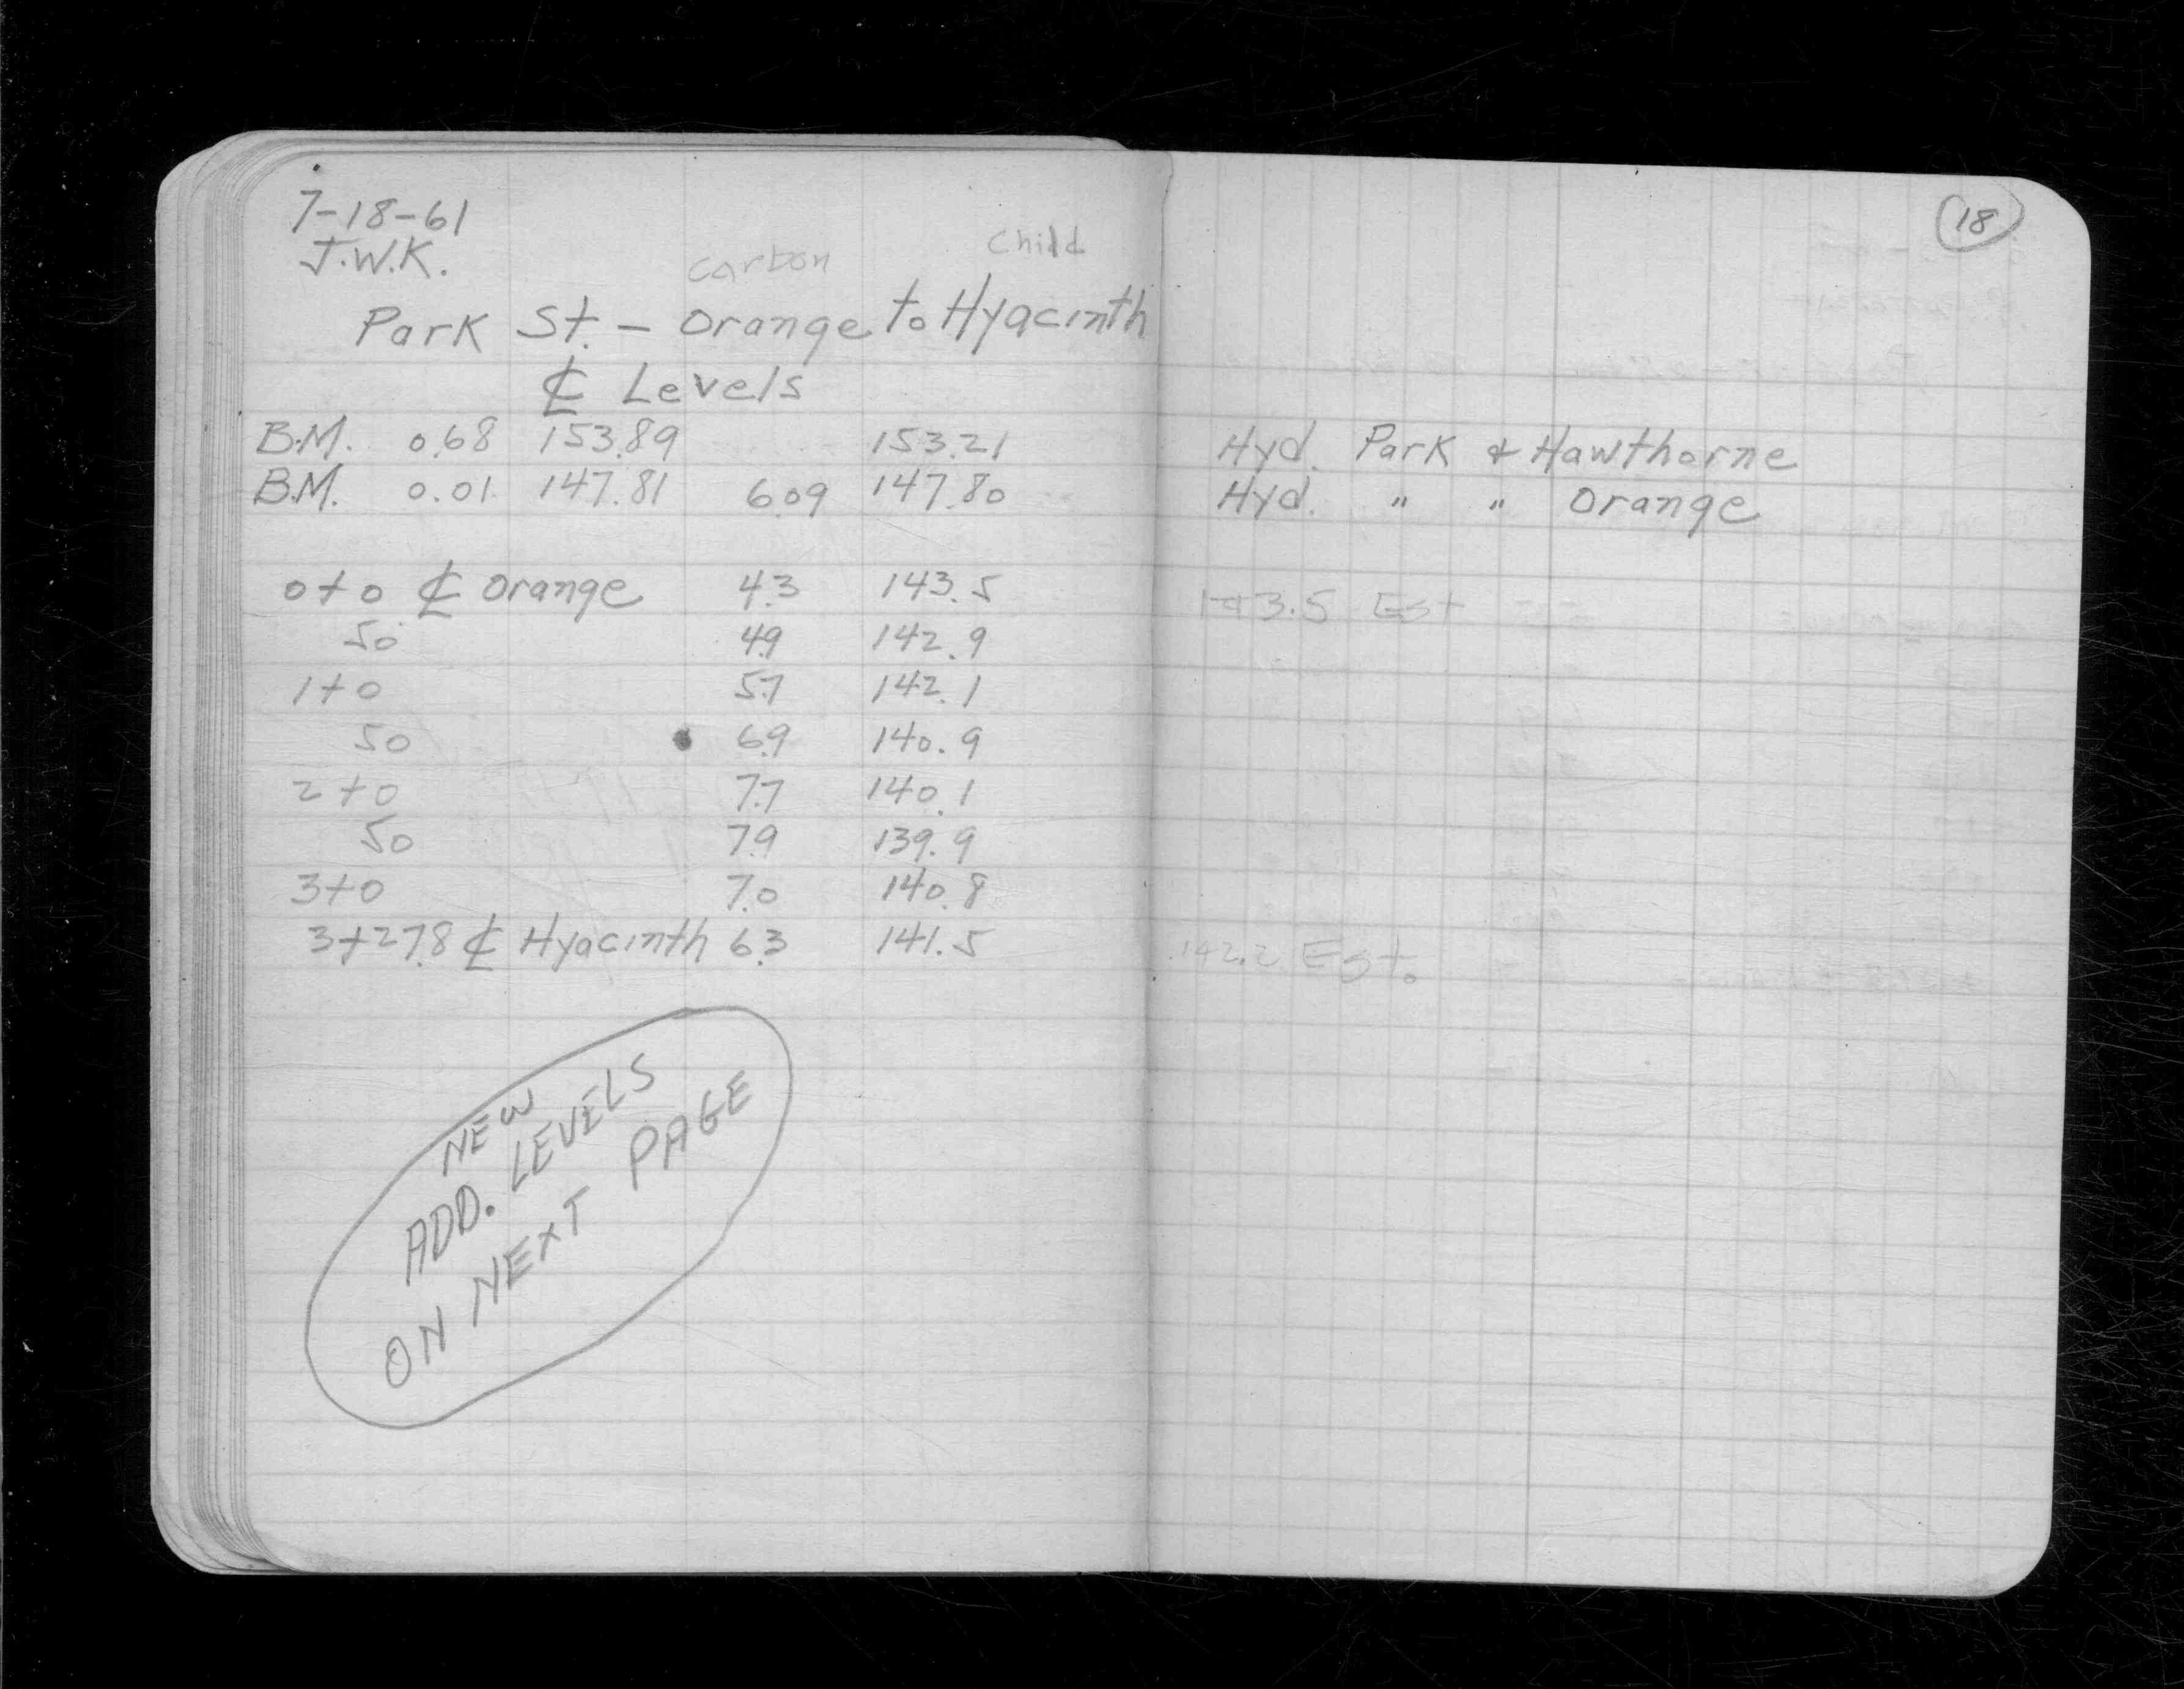 18
7-18-61
J.W.K.
Carbon Child
Park St. – Orange to Hyacinth
℄ Levels
B.M. 0.68 153.89 153.21 Hyd. Park & Hawthorne
B.M. 0.01 147.81 6.09 147.80 Hyd. " " Orange
0+0 ℄ Orange 4.3 143.5 143.5 Est
50 4.9 142.9
1+0 5.7 142.1
50 6.9 140.9
2+0 7.7 140.1
50 7.9 139.9
3+0 7.0 140.8
3+27.8 ℄ Hyacinth 6.3 141.5 142.2 Est.
NEW
ADD. LEVELS
ON NEXT PAGE